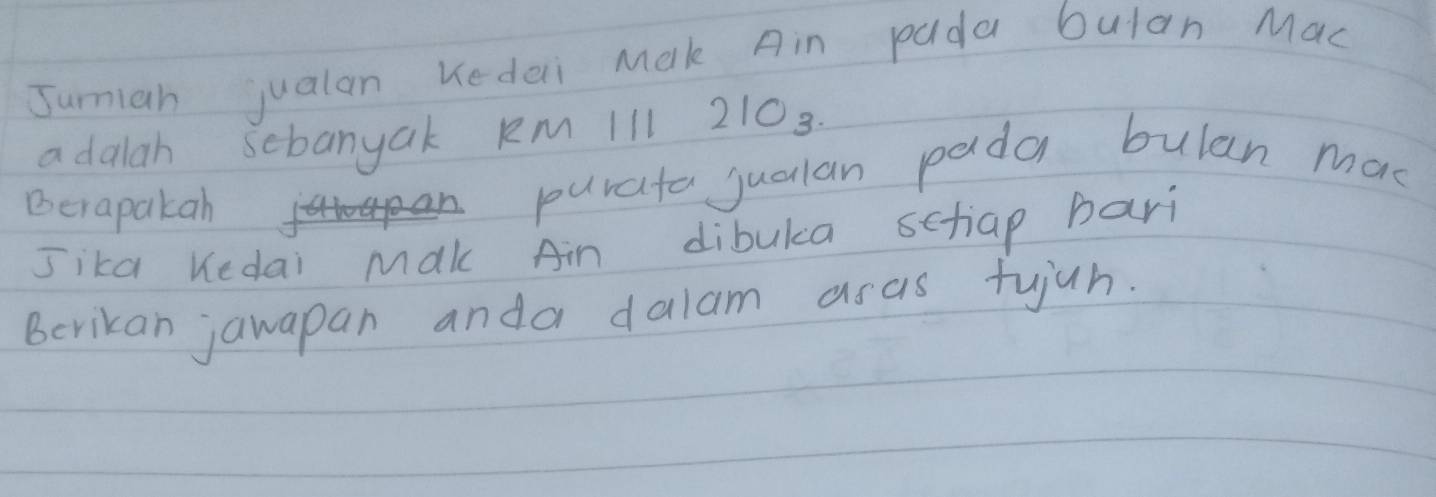 Jumlah jualan Kedai Mak Ain pada bulan Mac
adalah sebanyak RM 111 210₃.
Berapakah jawapan purata jualan pada bulan mac
Jika Kedai Mak Ain dibuka setiap hari
Berikan jawapan anda dalam asas tujuh.